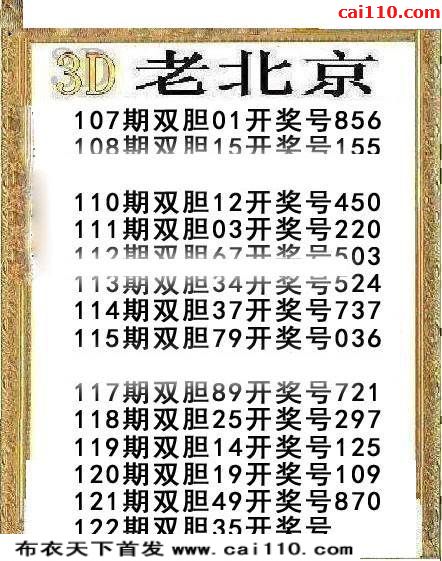 cai110.com
3D 老北京
107期双胆01开奖号856
108期双胆15开奖号155
110期双胆12开奖号450
111期双胆03开奖号220
112期双胆67开奖号503
113期双胆34开奖号524
114期双胆37开奖号737
115期双胆79开奖号036
117期双胆89开奖号721
118期双胆25开奖号297
119期双胆14开奖号125
120期双胆19开奖号109
121期双胆49开奖号870
122期双胆35开奖号
布衣天下首发 www.cai110.com